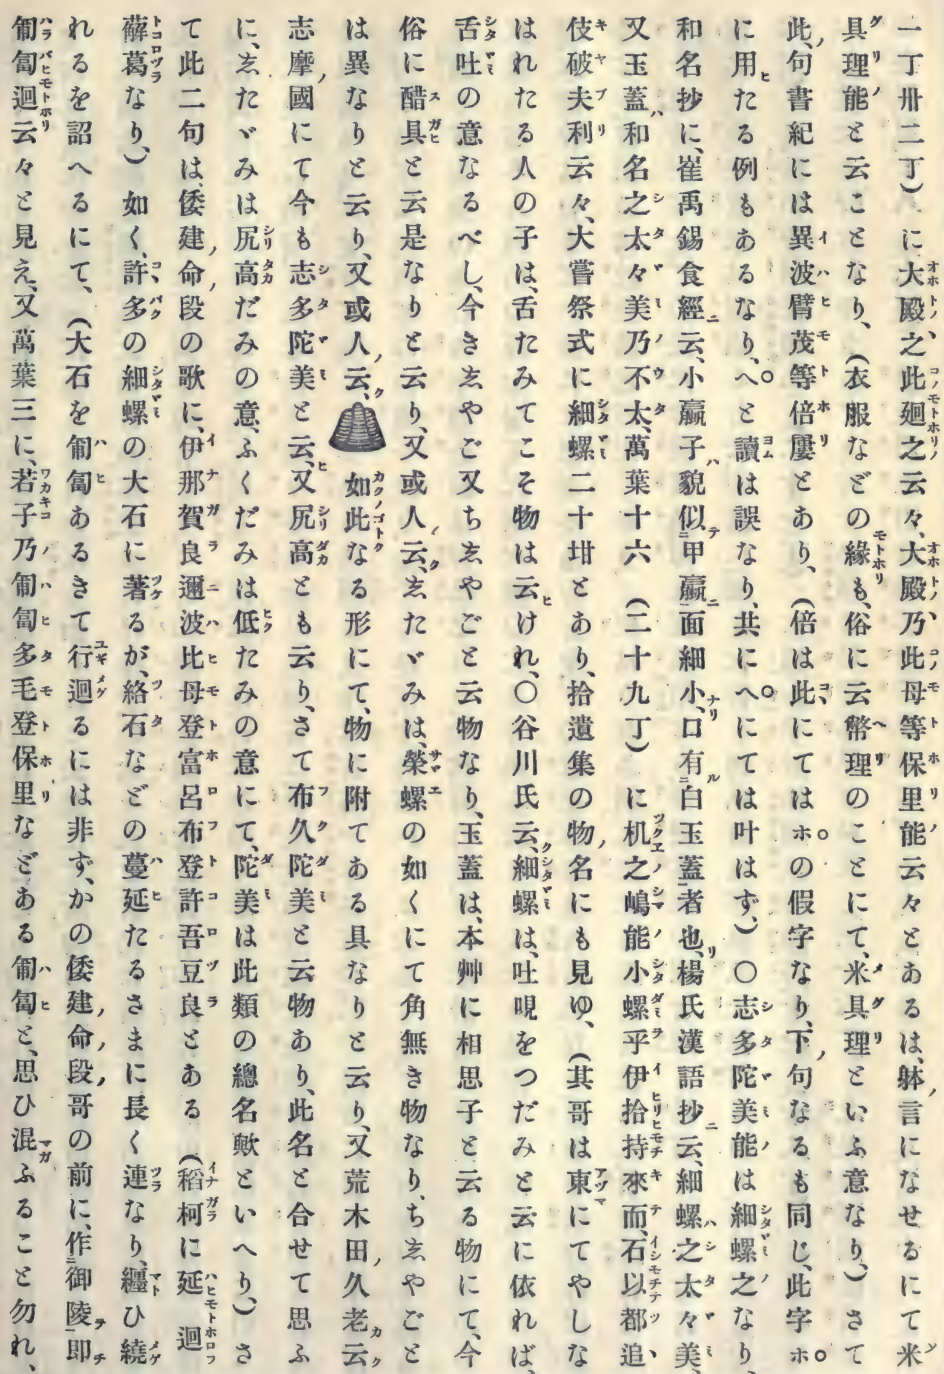 一丁卅二丁)に大殿之此廻之云々、大殿乃此母等保里能云々とあるは、躰言になせるにて米
具理能と云ことなり、(衣服などの縁も、俗に云幣理のことにて、米具理といふ意なり、)さて
此句書紀には異波臂茂等倍屢とあり、(倍は此にてはホの假字なり、下句なるも同じ、此字ホ
に用たる例もあるなり、へと讀は誤なり、共にへにては叶はず、)〇志多陀美能は細螺之なり、
和名抄に、崔禹錫食經云、小蠃子貌似甲蠃面細小、口有白玉蓋者也、楊氏漢語抄云、細螺之太々美、
又玉蓋和名之太々美乃不太、萬葉十六(二十九丁)に机之嶋能小螺乎伊拾持來而、石以都追
伎破夫利云々、大嘗祭式に細螺二十坩とあり、拾遺集の物名にも見ゆ、(其哥は東にてやしな
はれたる人の子は、舌たみてこそ物は云けれ、〇谷川氏云、細螺は、吐哯をつだみと云に依れば、
舌吐の意なるべし、今きゑやご又ちゑやごと云物なり、玉蓋は、本艸に相思子と云る物にて、今
俗に醋具と云是なりと云り、又或人云、ゑたゞみは、榮螺の如くにて角無き物なり、ちゑやごと
は異なりと云り、又或人云、如此なる形にて、物に附てある具なりと云り、又荒木田久老云
志摩國にて今も志多陀美と云、又尻高とも云り、さて布久陀美と云物あり、此名と合せて思ふ
に、ゑたゞみは尻高だみの意、ふくだみは低たみの意にて、陀美は此類の總名歟といへり、)さ
て此二句は、倭建命段の歌に、伊那賀良邇波比母登富呂布登許呂豆良とある(稻柯に延廻
薢葛なり、)如く、許多の細螺の大石に著るが、絡石などの蔓延たるさまに長く連なり、纏ひ繞
れるを詔へるにて、(大石を匍匐あるきて行廻るには非ず、かの倭建命段哥の前に、作御陵即
匍匐廻云々と見え、又萬葉三に、若子乃匍匐多毛登保里などある匍匐と、思ひ混ふること勿れ、